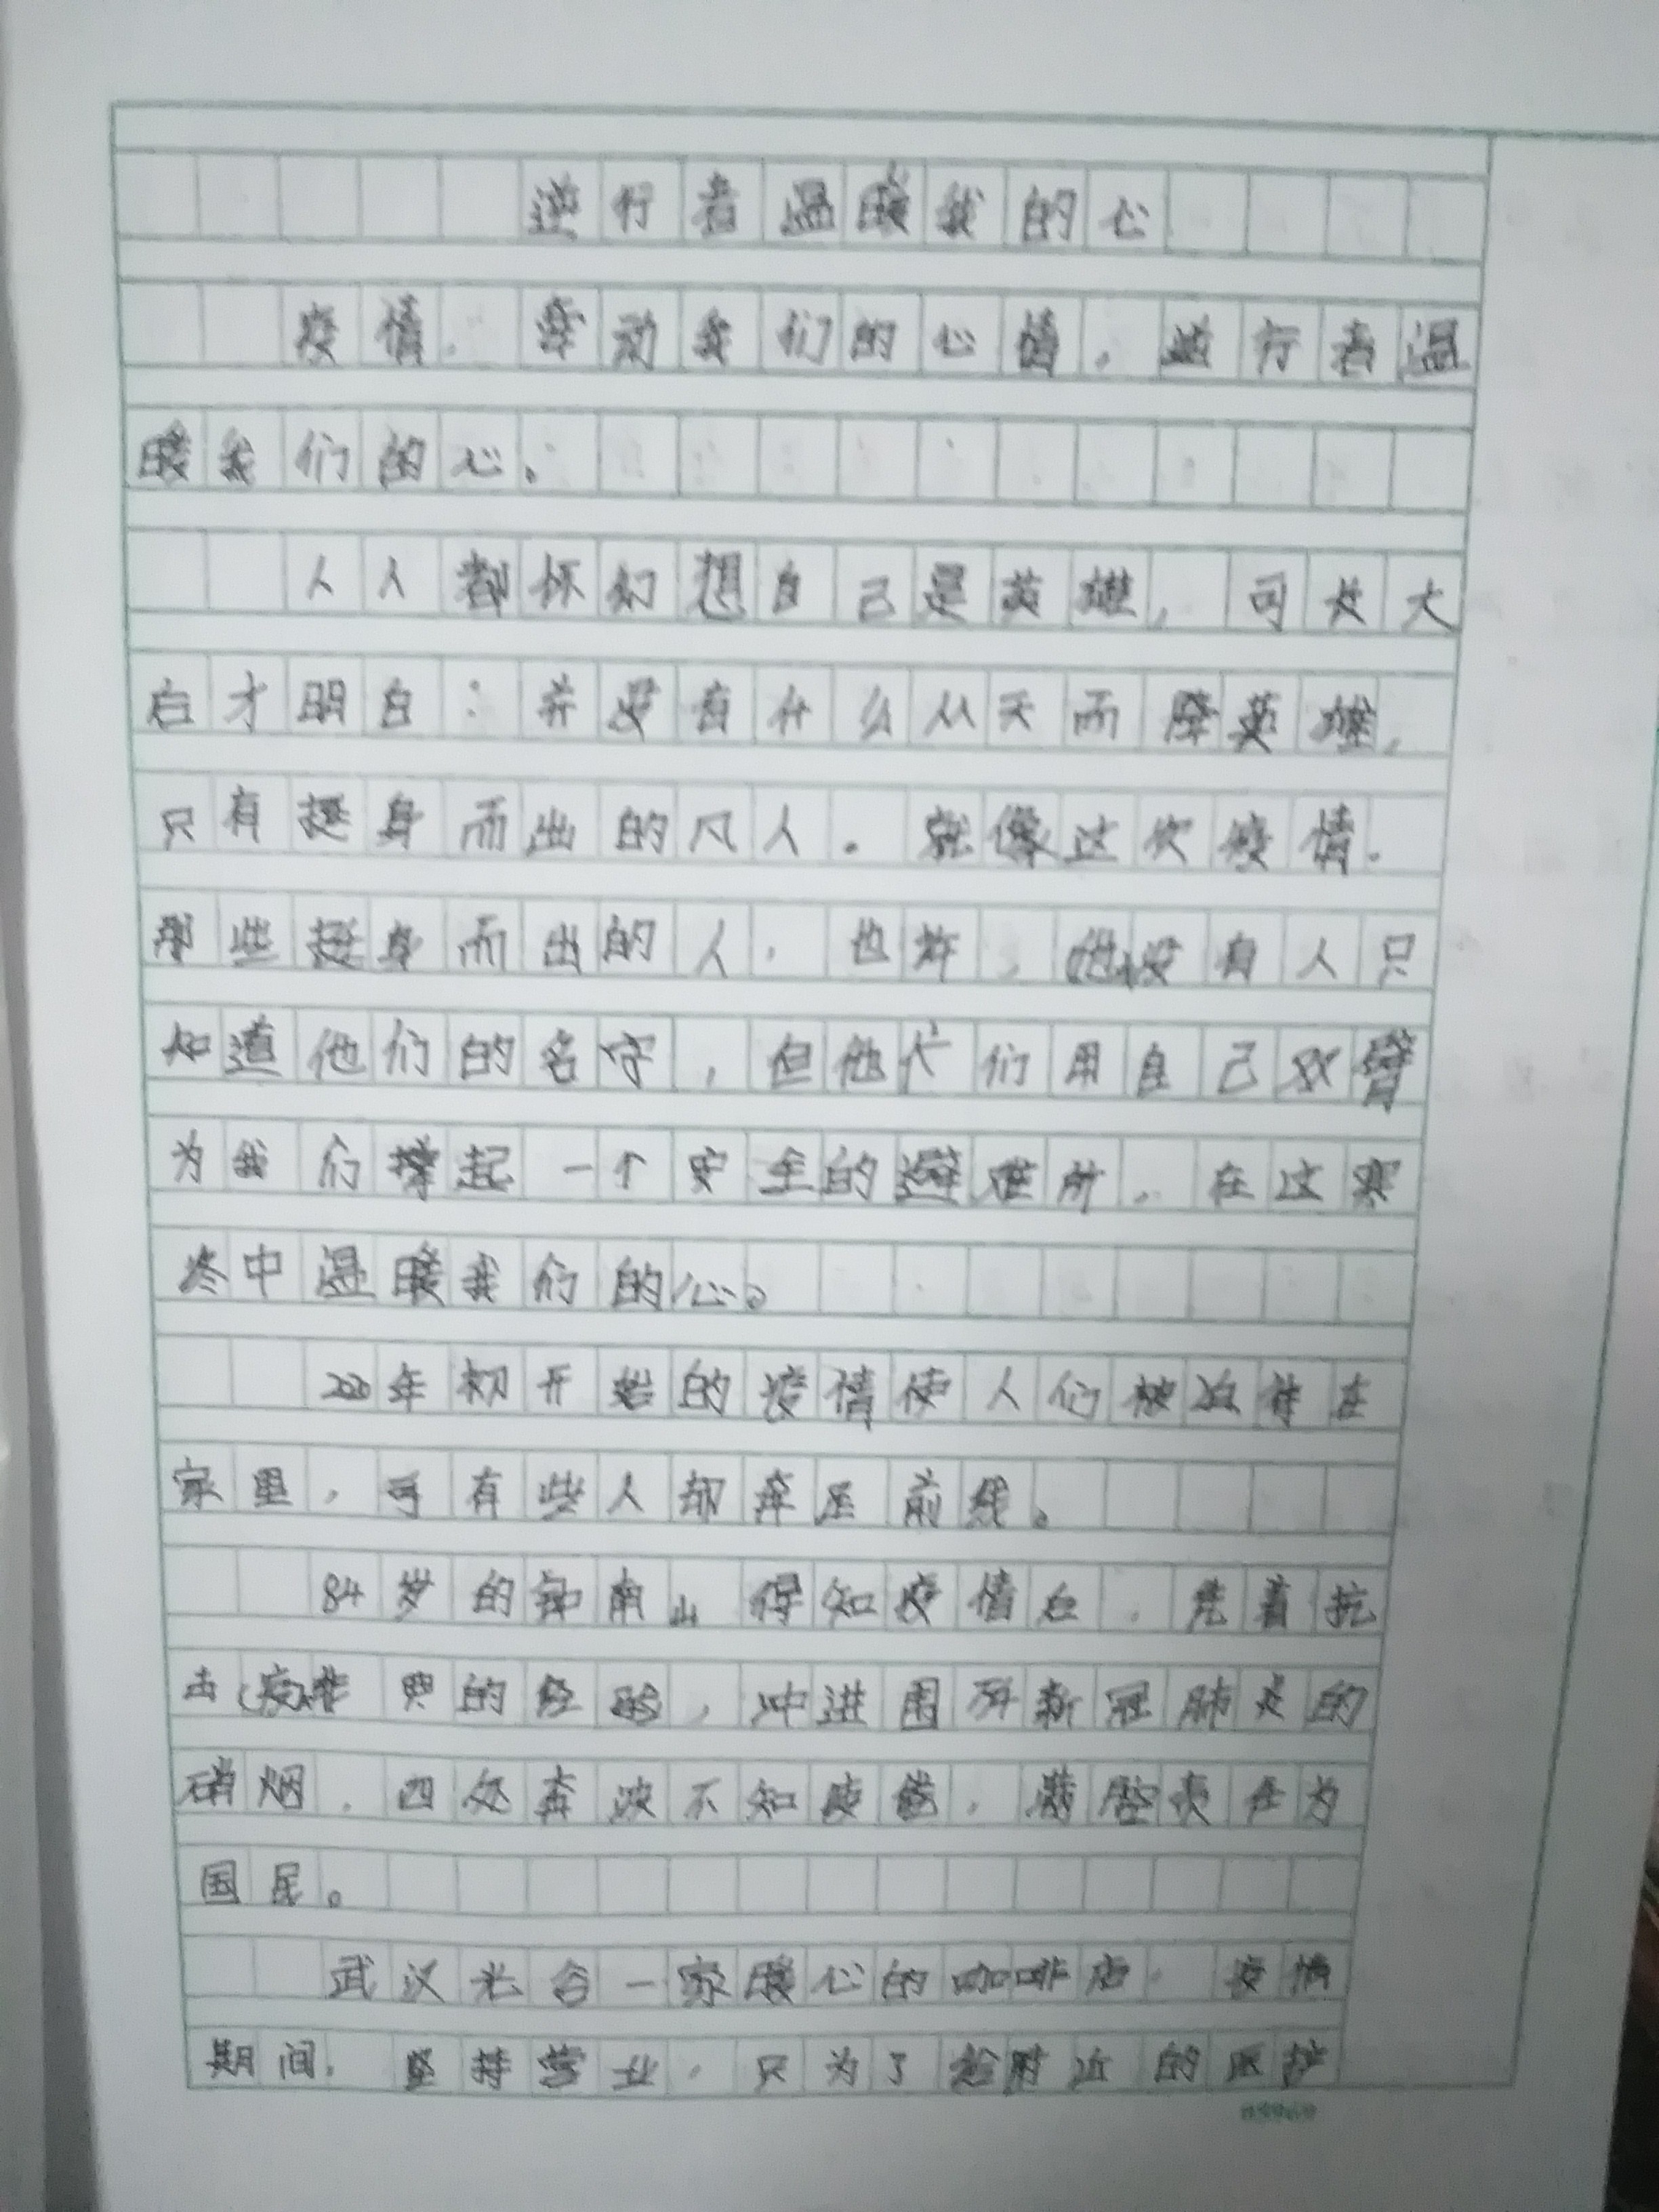 逆行者温暖我的心
疫情,牵动我们的心情,逆行者温
暖我们的心。
人人都怀幻想自己是英雄,可长大
后才明白:并没有什么从天而降英雄,
只有挺身而出的凡人。就像这次疫情.
那些挺身而出的人,也许,他没有人只
知道他们的名字,但他们用自己双臂
为我们撑起一个安全的避难所,在这寒
冬中温暖我们的心。
2020年初开始的疫情使人们被迫待在
家里,可有些人却奔赴前线。
84岁的钟南山得知疫情后,凭着抗
击疫非典的经验,冲进围歼新冠肺炎的
硝烟,四处奔波不知疲倦,满腔责任为
国民。
武汉光谷一家暖心的咖啡店,疫情
期间,坚持营业,只为了给附近的医护